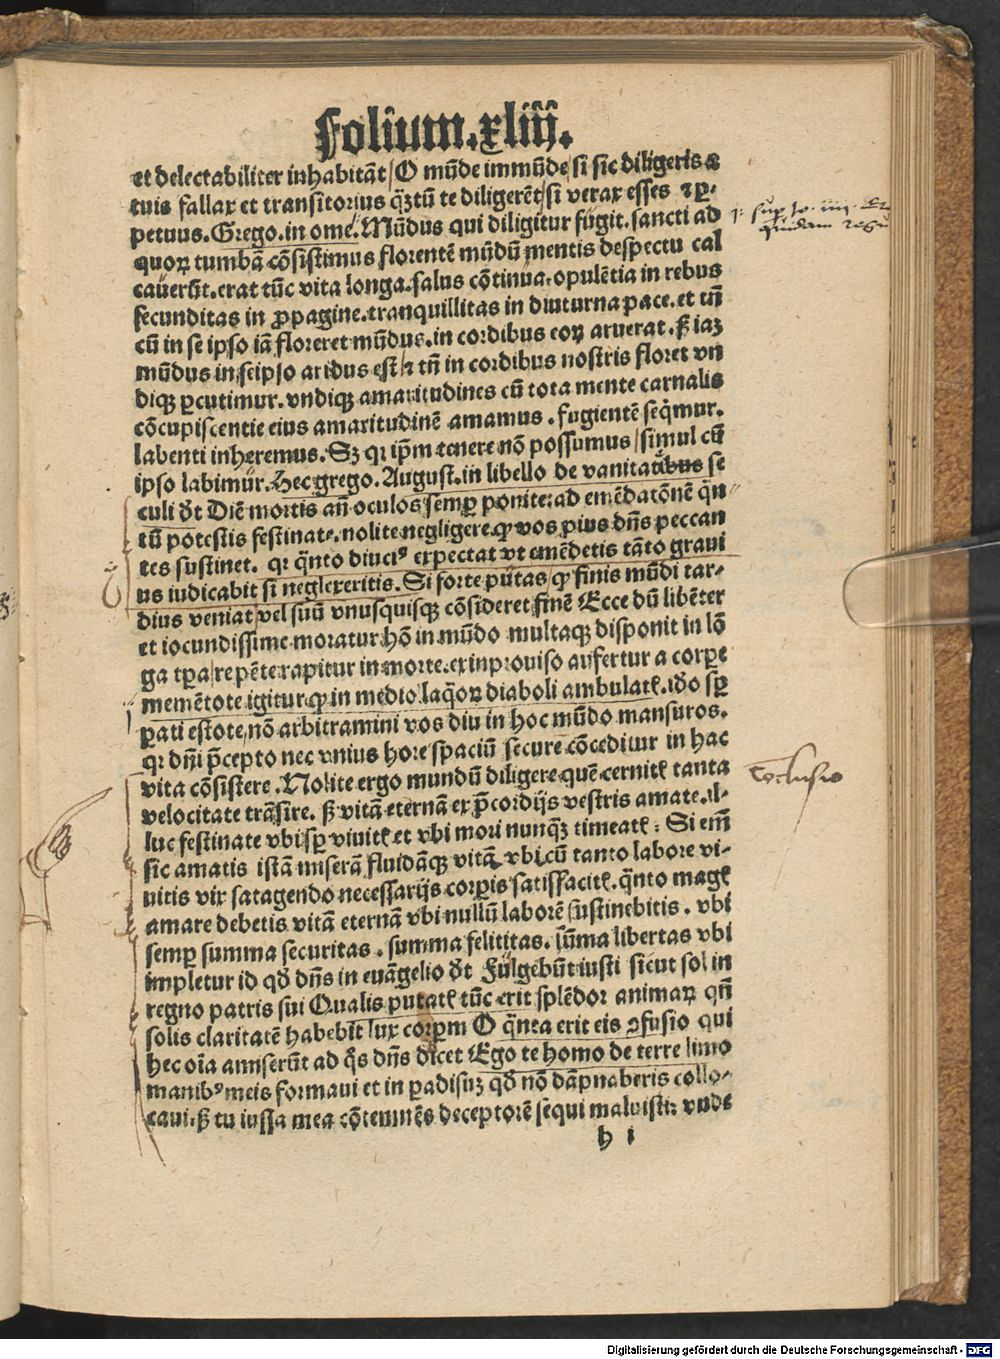 Folium.xliiij.
et delectabiliter inhabitāt/O mūde immūde/si sic diligeris a
tuis fallax et transitorius q̄ztū te diligerēt/si verax esses ⁊ ꝑ-
petuus. Grego. in ome. Mūdus qui diligitur fugit. sancti ad
quoꝝ tumbā cōsistimus florentē mūdū mentis despectu cal
cauerūt. erat tūc vita longa. salus cōtinua. opulētia in rebus
fecunditas in ꝓpagine. tranquillitas in diuturna pace. et tn̄
cū in se ipso iā floreret mūdus. in cordibus eoꝝ aruerat. ꝭꝫ iaz
mūdus in seipso aridus est/⁊ tn̄ in cordibus nostris floret vn
diqꝫ ꝑcutimur. vndiqꝫ amaritudines cū tota mente carnalis
cōcupiscentie eius amaritudinē amamus. fugientē seq̄mur.
labenti inheremus. Sꝫ qꝛ ip̄m tenere nō possumus/simul cū
ipso labimur. Hec grego. August. in libello de vanitatibus se
culi d̄t Diē mortis an̄ oculos semꝑ ponite: ad emēdatōnē q̄n
tū potestis festinate. nolite negligere. ꝙ vos prius dn̄s peccan
tes sustinet. qꝛ q̄nto diuciꝰ expectat vt emēdetis tāto graui
us iudicabit si neglexeritis. Si forte putas/ꝙ finis mūdi tar-
dius veniat/vel suū vnusquisqꝫ cōsideret finē Ecce dū libēter
et iocundissime moratur hō in mūdo multaqꝫ disponit in lō
ga tꝑa/repēte rapitur in morte. ex inprouiso aufertur a corꝑe
memētote igitur. ꝙ in medio laq̄oꝝ diaboli ambulatꝭ. id̄o sꝑ
ꝑati estote, nō arbitramini vos diu in hoc mūdo mansuros.
qꝛ dn̄i p̄cepto nec vnius hore spaciū secure cōceditur in hac
vita cōsistere. Nolite ergo mundū diligere quē cernitꝭ tanta
velocitate trāsire. ꝭꝫ vitā eternā ex p̄cordijs vestris amate. il-
luc festinate vbi sꝑ viuitꝭ et vbi mori nunq̄ꝫ timeatꝭ: Si em̄
sic amatis istā miserā fluidāqꝫ vitā vbi cū tanto labore vi-
uitis vix satagendo necessarijs corꝑis satisfacitꝭ. q̄nto magꝭ
amare debetis vitā eternā vbi nullū laborē sustinebitis. vbi
semꝑ summa securitas. summa felititas. sūma libertas vbi
impletur id qd̄ dn̄s in euāgelio d̄t Fulgebūt iusti sicut sol in
regno patris sui Qualis putatꝭ tūc erit splēdor animaꝝ qn̄
solis claritatē habebit lux corꝑm O q̄nta erit eis ↄfusio qui
hec oīa amiserūt ad q̄s dn̄s dicet Ego te homo de terre limo
manibꝰ meis formaui et in ꝑadisuꝫ qd̄ nō dāpnaberis collo-
caui. ꝭꝫ tu iussa mea cōtemnēs deceptorē sequi maluisti: vnde
h i
conclusio
Digitalisierung gefördert durch die Deutsche Forschungsgemeinschaft - DFG